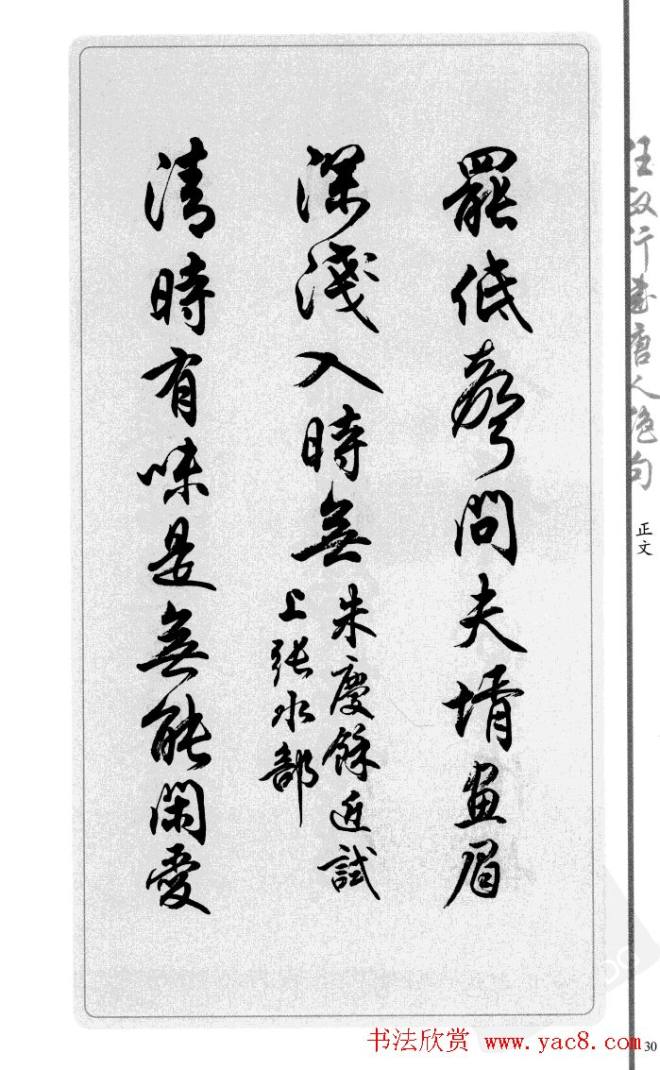 任政行書唐人绝句
正文
罷低聲問夫壻畫眉
深淺入時無
朱慶餘近試
上張水部
清時有味是無能閑愛
书法欣赏 www.yac8.com
30